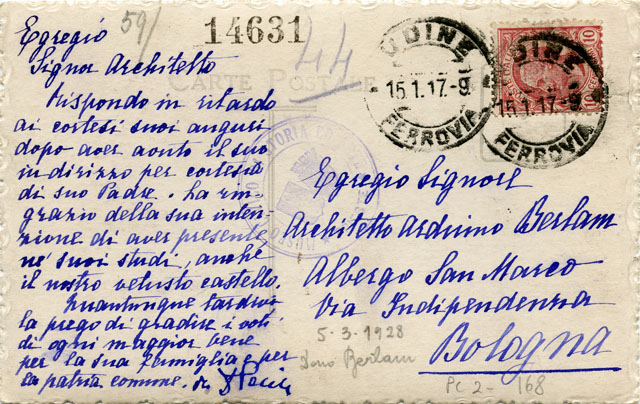 59/
14631
44
CARTE POSTALE
UDINE
15.1.17.-9
FERROVIA
UDINE
15.1.17.-9
FERROVIA
10
Egregio
Signor Architetto
Rispondo in ritardo
ai cortesi suoi auguri
dopo aver avuto il suo
indirizzo per cortesia
di suo Padre. La rin-
grazio della sua inten-
zione di aver presente,
ne' suoi studi, anche
il nostro vetusto castello.
Quantunque tardivi
la prego di gradire i voti
di ogni maggior bene
per la sua famiglia e per
la patria comune.
Egregio Signore
Architetto Arduino Berlam
Albergo San Marco
Via Indipendenza
Bologna
5-3-1928
Dono Berlam
PC 2- 168